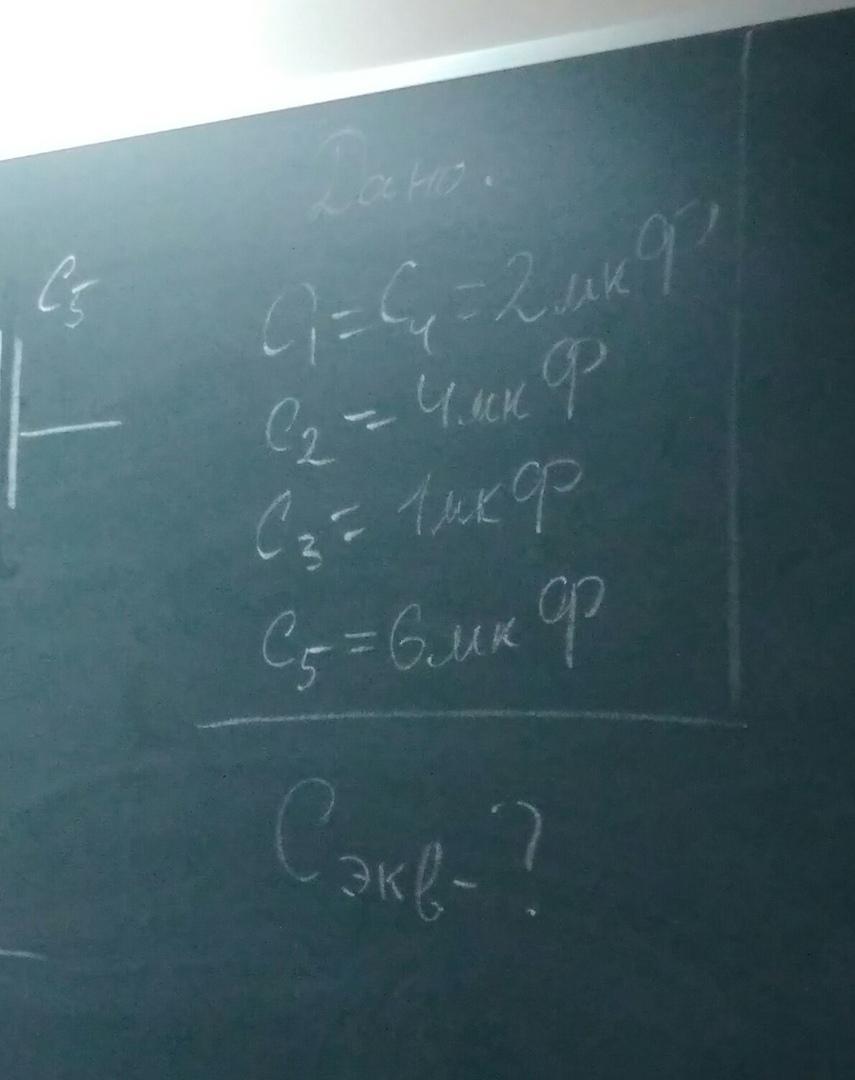 Дано.
C5
C1 = C4 = 2 мкФ
C2 = 4 мкФ
C3 = 1 мкФ
C5 = 6 мкФ
Cэкв - ?